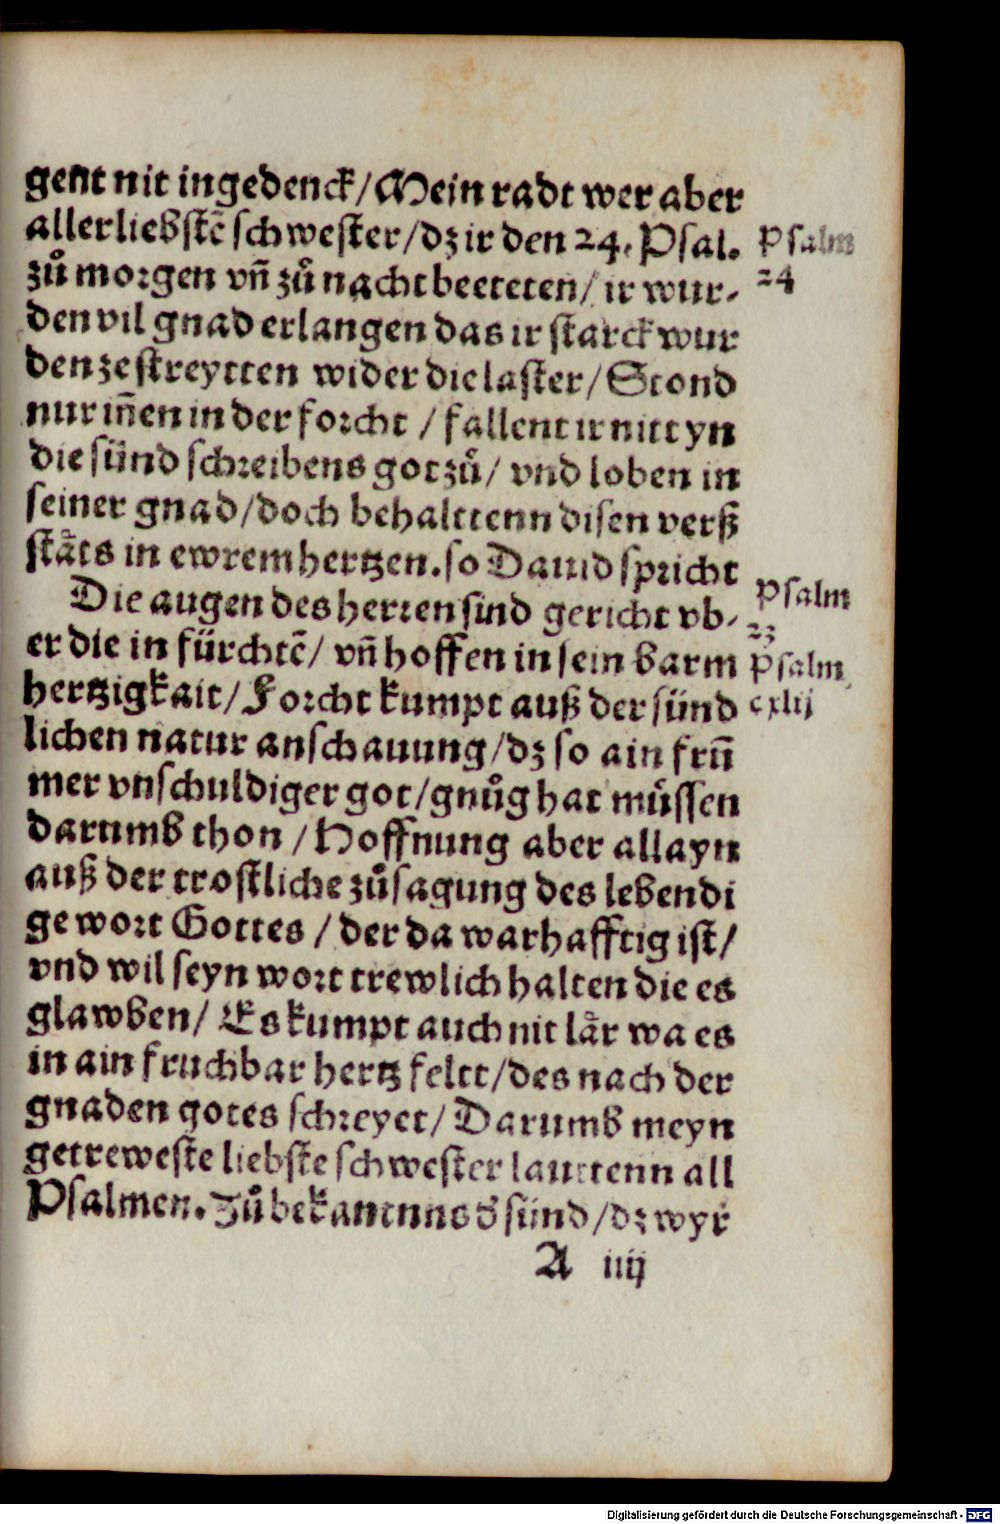 gent nit ingedenck/Mein radt wer aber
allerliebstē schwester/dz ir den 24. Psal.
zů morgen vn̄ zů nacht beeteten/ ir wur-
den vil gnad erlangen das ir starck wur
den zestreytten wider die laster/Stond
nur in̄en in der forcht / fallent ir nitt yn
die sünd schreibens got zů/ vnd loben in
seiner gnad/doch behalttenn disen verß
stäts in ewrem hertzen.so Dauid spricht
Die augen des herren sind gericht vb-
er die in fürchtē/ vn̄ hoffen in sein barm
hertzigkait/Forcht kumpt auß der sünd
lichen natur anschauung/dz so ain frū
mer vnschuldiger got/gnůg hat müssen
darumb thon /Hoffnung aber allayn
auß der trostliche zůsagung des lebendi
ge wort Gottes /der da warhafftig ist/
vnd wil seyn wort trewlich halten die es
glawben/ Es kumpt auch nit lär wa es
in ain fruchbar hertz feltt/des nach der
gnaden gotes schreyet/Darumb meyn
getreweste liebste schwester lauttenn all
Psalmen. Zů bekantnus d̕ sünd/dz wyr
A iiij
Psalm
24
Psalm
23
Psalm
cxlij
Digitalisierung gefördert durch die Deutsche Forschungsgemeinschaft - DFG